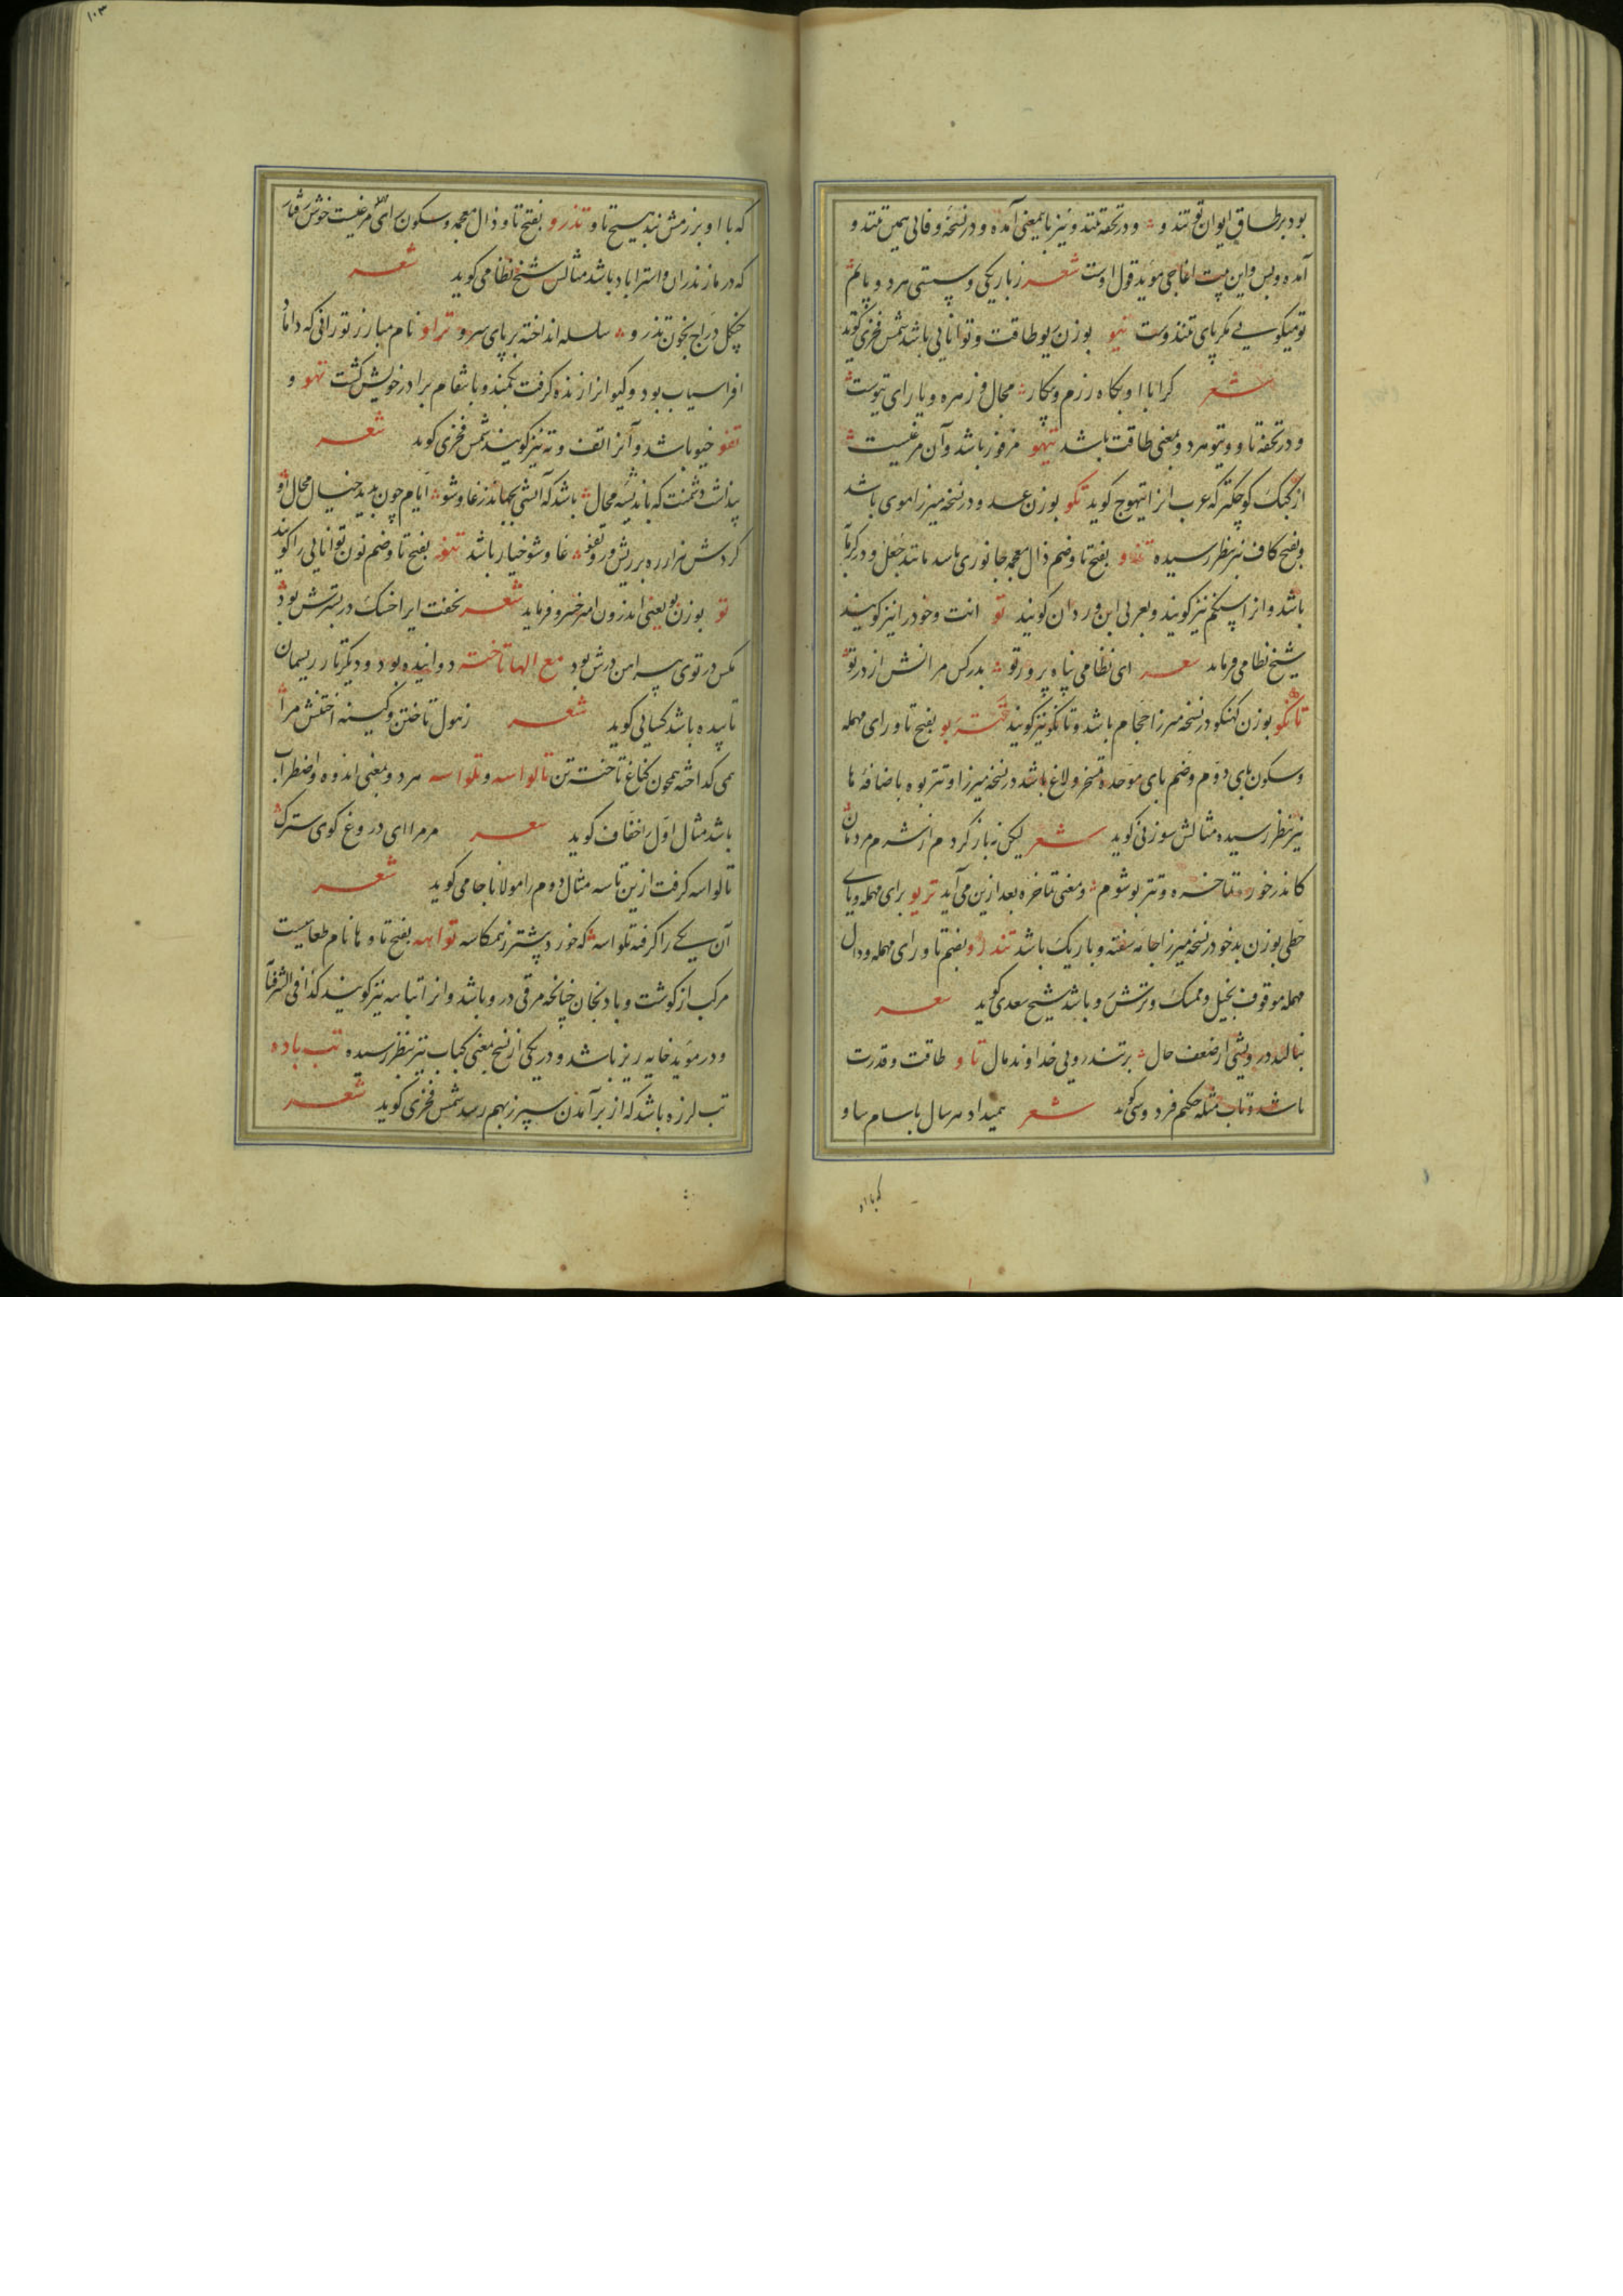 بود بر طاق ایوان تو تندو و در تحفه تنندو نیز باینمعنی آمده و در نسخه وفائی همین تنندو
آمده و بس و این بیت اغاجی مؤید قول اوست شعر ز باریکی و سستی هر دو پایم
تو میگویی مگر پای تنندوست تیو بوزن یو طاقت و توانایی باشد شمس فخری گوید
شعر کرا با او بگاه رزم و پیکار مجال و زهره و یارای تیوست
و در تحفه تاو و تیو هر دو بمعنی طاقت باشد تیهو مرغی باشد و آن مرغیست
از کبک کوچکتر که عرب انرا تیهوج گوید تکو بوزن عدو در نسخه میرزا موی باشد
و بفتح کاف نیز بنظر رسیده تذو بفتح تا و ضم ذال معجمه جانوری باشد مانند جعل و در گرمابه
باشد و انرا نیز گویند و بعربی ابن وردان گویند تو انت و خود را نیز گویند
شیخ نظامی فرماید شعر ای نظامی پناه پرور تو بدر کس مرانش از در تو
تانکو بوزن کنکو در نسخه میرزا حجام باشد و تانگو نیز گویند تتربو بفتح تا و رای مهمله
و سکون تای دوم و ضم بای موحده تسخر و لاغ باشد در نسخه میرزا و تتربوه باضافهٔ ها
نیز بنظر رسیده مثالش سوزنی گوید شعر لیکن نه باز گردم از شرم مردمان
کاندر خور تتاخره و تتربو شوم و معنی تتاخره بعد ازین می آید تریو برای مهمله و یای
حطی بوزن بدخو در نسخه میرزا جامه سفته و باریک باشد تندرو بضم تا و رای مهمله و دال
مهمله موقوف بخیل و ممسک و ترش رو باشد شیخ سعدی گوید شعر
بنالید درویشی از ضعف حال بر تندرویی خداوند مال تاو طاقت و قدرت
باشد و تاب مثله حکیم فردوسی گوید شعر همیداد هر سال با سام ساو
که با او
۱۰۳
که با او برزمش نبد هیچ تاو تذرو بفتح تا و ذال معجمه و سکون رای مرغیست خوش رفتار
که در مازندران و استراباد باشد مثالش شیخ نظامی گوید شعر
چنگل دراج بخون تذرو سلسله انداخته بر پای سرو تراو نام مبارز تورانی که داماد
افراسیاب بود و گیو انرا زنده گرفت بکمند و بانتقام برادر خویش کشت تهو و
تفو خیو باشد و آنرا تف و ته نیز گویند شمس فخری گوید شعر
پنداشت دشمنت که باندیشه محال باشد که آتشی بجهاندز غاوشو ایام چون بدید خیال محال او
کردش هزار ره بریش و تفو غاوشو خیار باشد تنو بفتح تا و ضم نون توانایی را گویند
تو بوزن بو یعنی اندرون امیر خسرو فرماید شعر نخفت ایرا خسک در بسترش بود
مگس در توی پیراهن درش بود مع الها تاخته دوانیده بود و دیگر تار ریسمان
تابیده باشد کسایی گوید شعر ز هول تاختن و کینه اختنش مرا
همی گداخته همچون کناغ تاخته تن تالواسه و تلواسه هر دو بمعنی اندوه و اضطراب
باشد مثال اول را خفاف گوید شعر مر مرا ای دروغ گوی سترک
تالواسه گرفت ازین تاسه مثال دوم را مولانا جامی گوید شعر
آن یکی را گرفته تلواسه که خورد پیشتر ز همکاسه تواهه بفتح تا و ها نام طعامیست
مرکب از گوشت و بادنجان چنانچه مرقی درو باشد و انرا تباهه نیز گویند کذا فی الشرفنامه
و در مؤید خایه ریز باشد و در یکی از نسخ بمعنی کباب نیز بنظر رسیده تب باده
تب لرزه باشد که از برآمدن سپرز بهم رسد شمس فخری گوید شعر